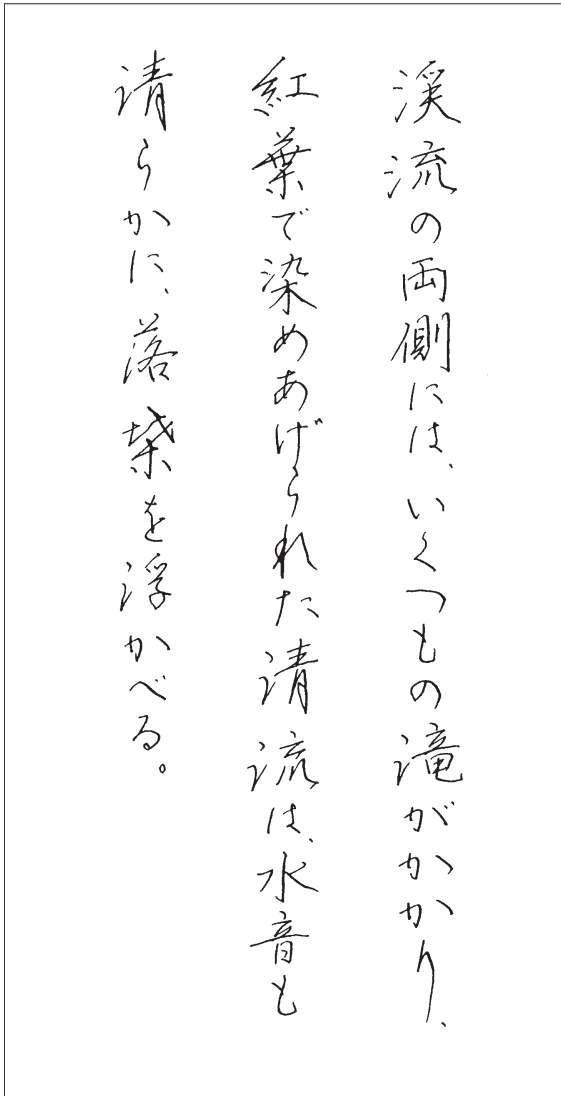 渓流の両側には、いくつもの滝がかかり、
紅葉で染めあげられた清流は、水音も
清らかに、落葉を浮かべる。